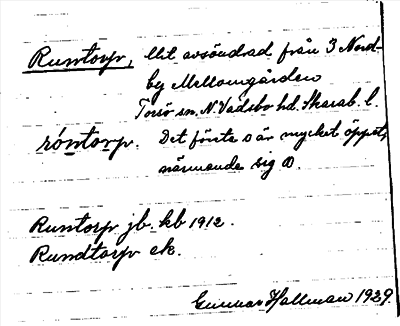 Runtorp, Utst avsöndrad från 3 Nord-
by Mellomgården
Torsö sn. N. Vadsbo hd. Skarab. l.
róntorp. Det första o är mycket öppet,
närmande sig a.
Runtorp jb. kb 1912.
Rundtorp ek.
Gunnar Hallman 1929.